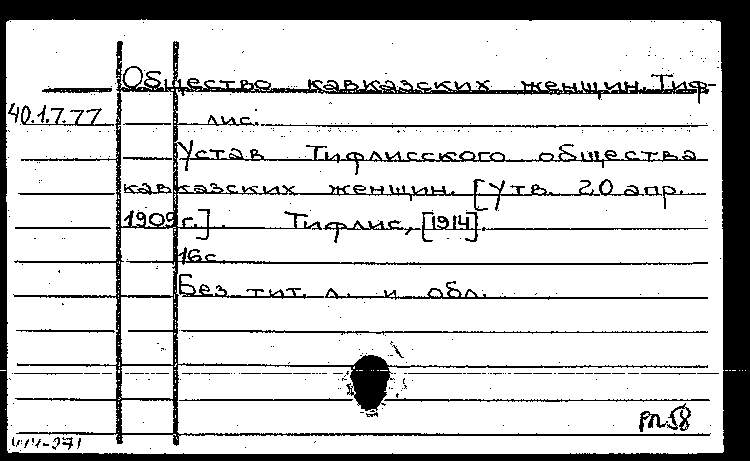 Общество кавказских женщин. Тиф-
40.1.7.77 лис.
Устав Тифлисского общества
кавказских женщин. [Утв. 20 апр.
1909 г.]. Тифлис, [1914].
16 с.
Без тит. л. и обл.